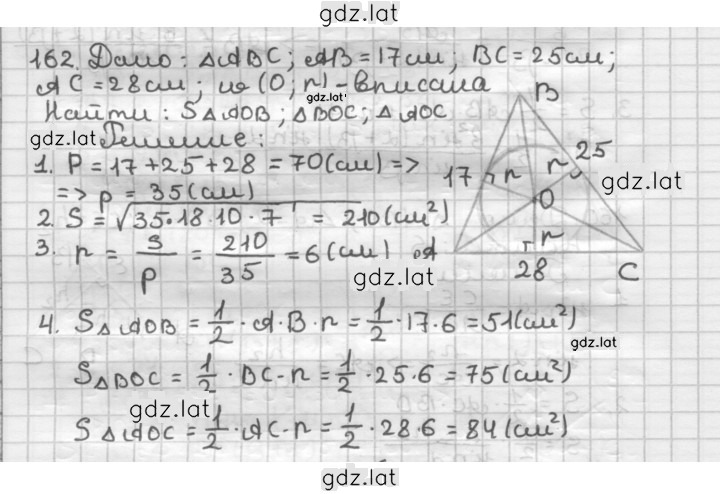 gdz.lat
162. Дано: △ABC; AB = 17 см; BC = 25 см;
AC = 28 см; ω (O; r) - вписана
gdz.lat
Найти: S△AOB; △BOC; △AOC
gdz.lat Решение:
1. P = 17 + 25 + 28 = 70 (см) =>
=> p = 35 (см)
2. S = √35·18·10·7 = 210 (см²)
3. r = S/p = 210/35 = 6 (см)
gdz.lat
B
17
r
r
25
gdz.lat
O
r
A
28
C
4. S△AOB = 1/2 · A·B · r = 1/2 · 17 · 6 = 51 (см²)
gdz.lat
S△BOC = 1/2 · BC · r = 1/2 · 25 · 6 = 75 (см²)
gdz.lat
S△AOC = 1/2 · AC · r = 1/2 · 28 · 6 = 84 (см²)
gdz.lat